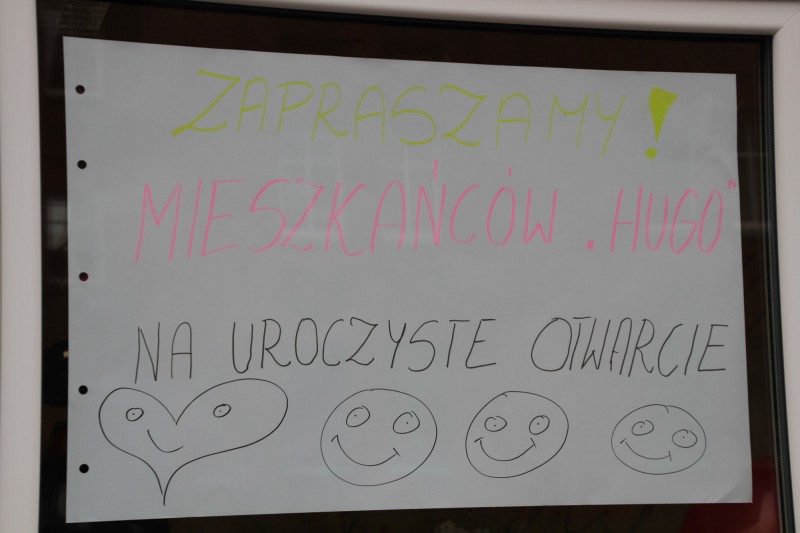 ZAPRASZAMY!
MIESZKAŃCÓW „HUGO”
NA UROCZYSTE OTWARCIE